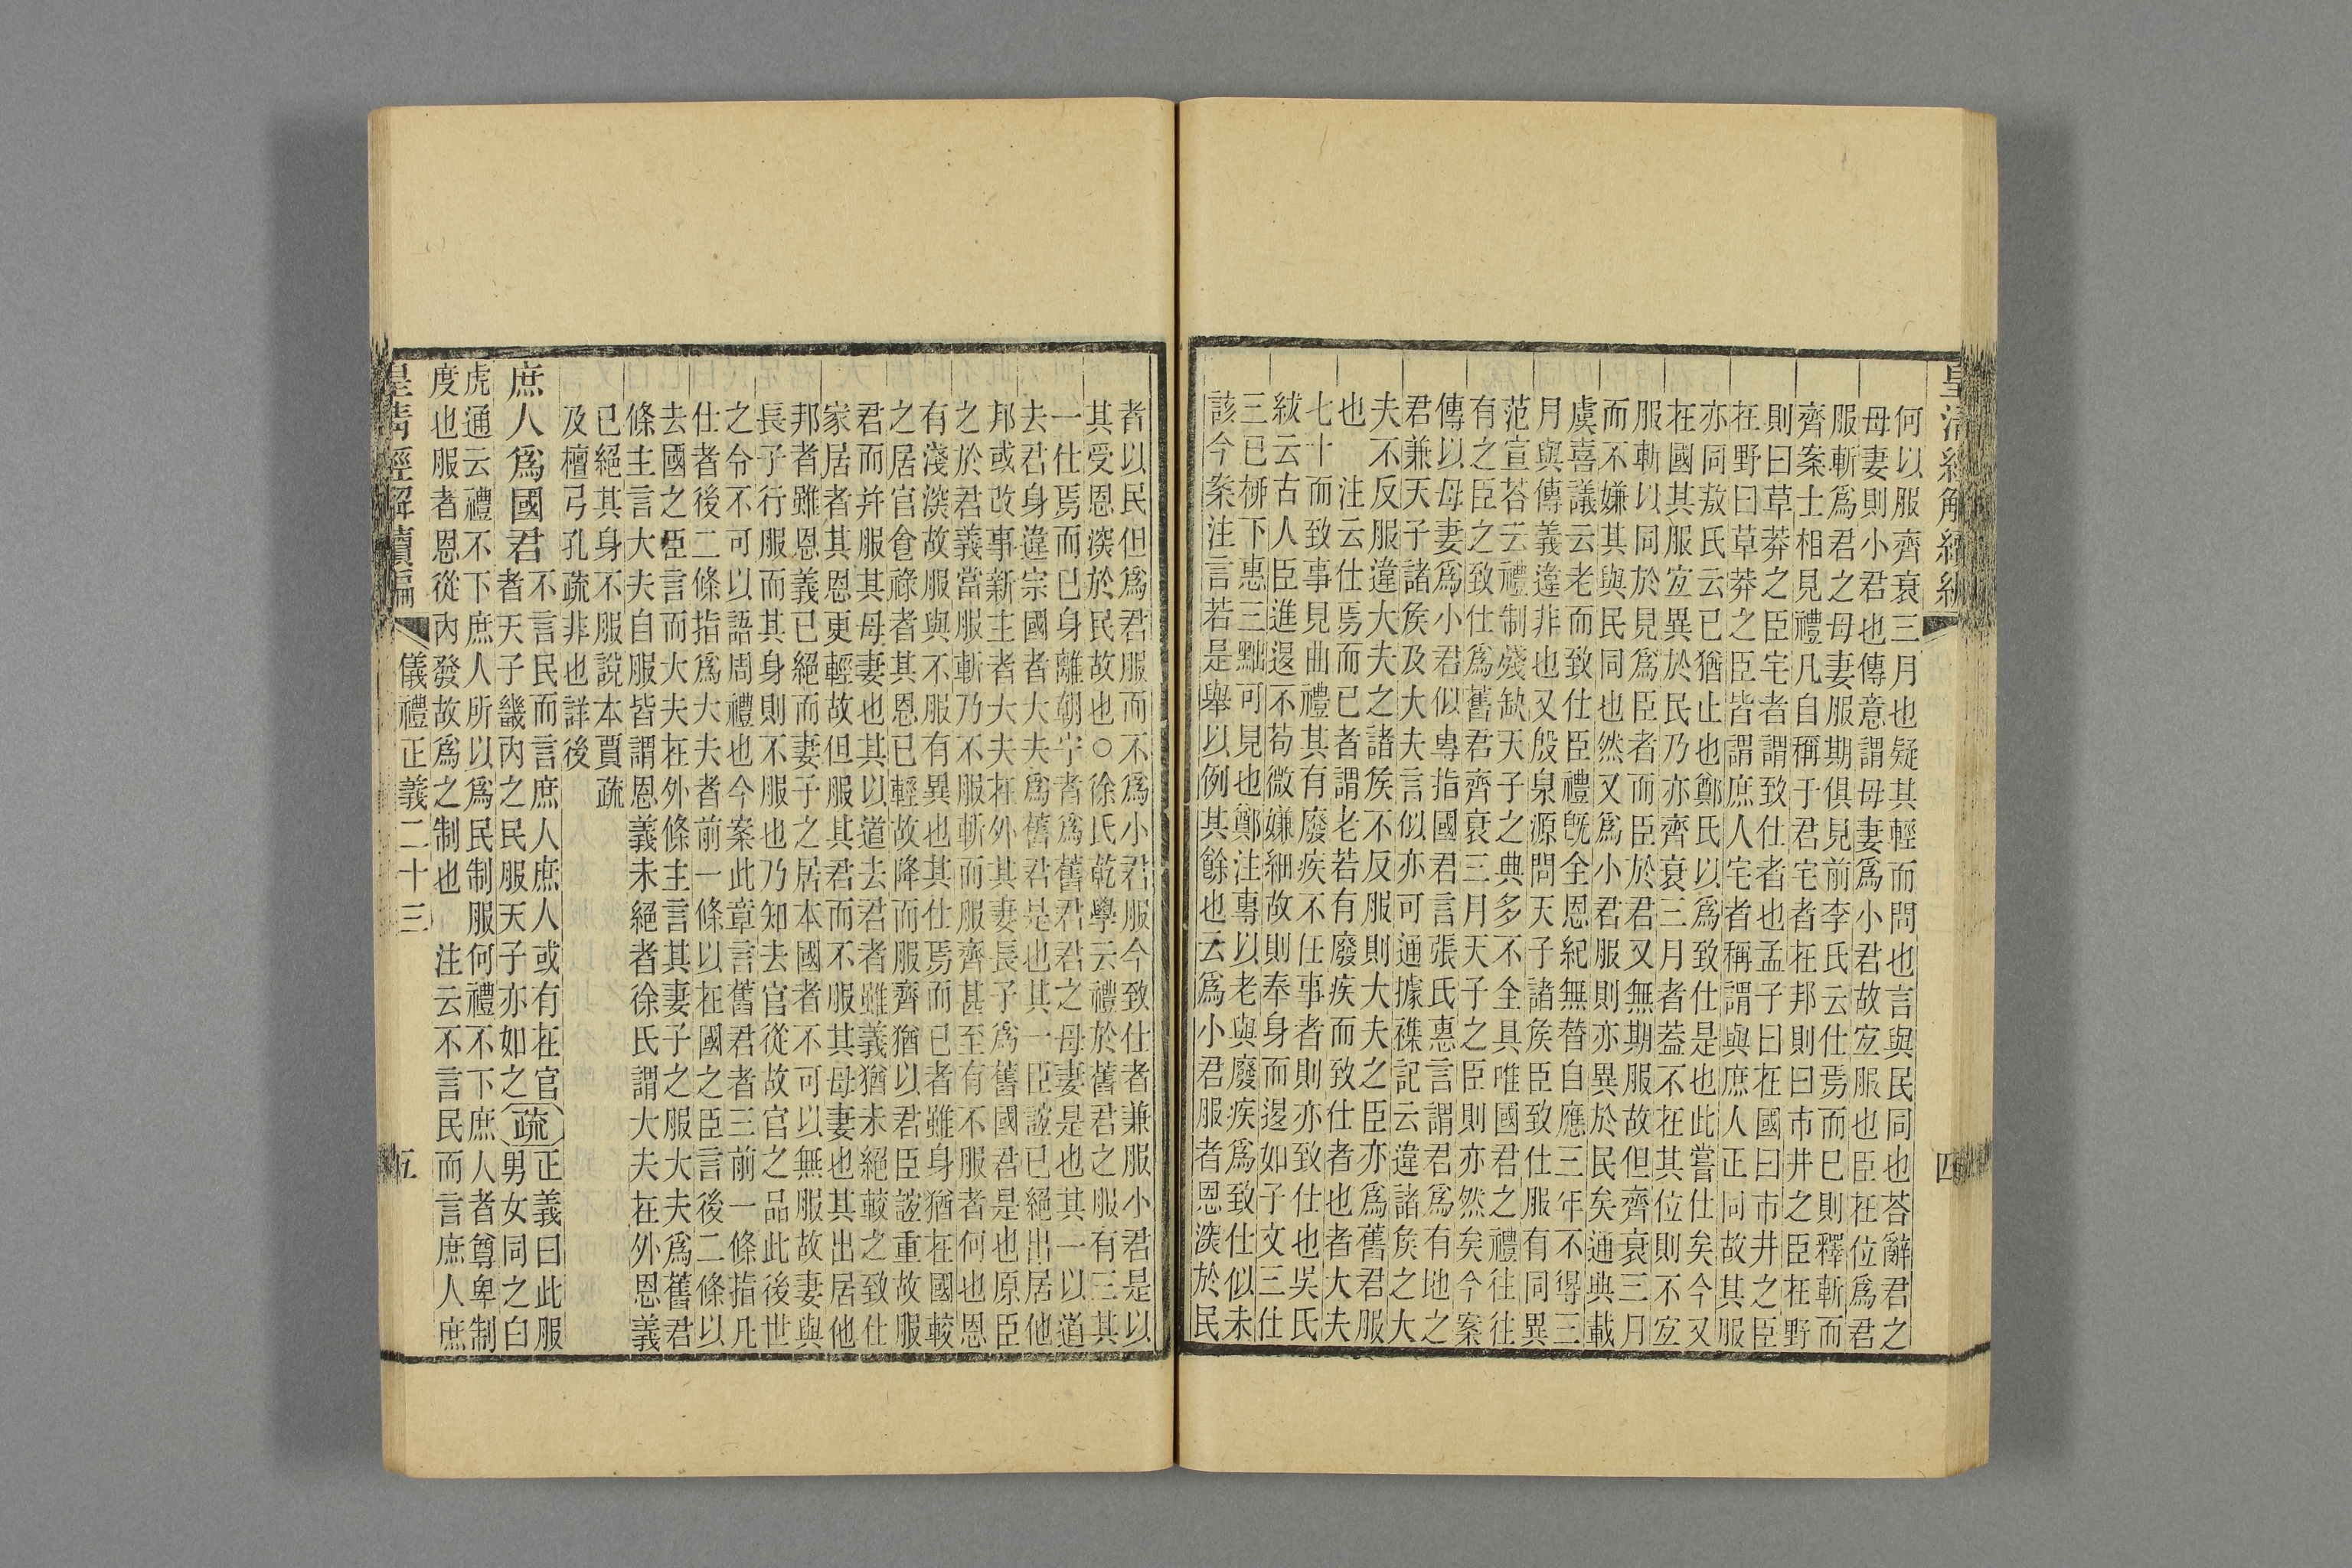 皇清經解續編
四
何以服齊衰三月也疑其輕而問也言與民同也荅辭君之
母妻則小君也傳意謂母妻爲小君故宐服也臣在位爲君
服斬爲君之母妻服期俱見前李氏云仕焉而已則釋斬而
齊案士相見禮凡自稱于君宅者在邦則曰市井之臣在野
則曰草莽之臣宅者謂致仕者也孟子曰在國曰市井之臣
在野曰草莽之臣皆謂庶人宅者稱謂與庶人正同故其服
亦同敖氏云已猶止也鄭氏以爲致仕是也此嘗仕矣今又
在國其服宐異於民乃亦齊衰三月者葢不在其位則不宐
服斬以同於見爲臣者而臣於君又無期服故但齊衰三月
而不嫌其與民同也然又爲小君服則亦異於民矣通典載
虞喜議云老而致仕臣禮旣全恩紀無替自應三年不得三
月與傳義違非也又殷泉源問天子諸矦臣致仕服有同異
范宣荅云禮制殘缺天子之典多不全具唯國君之禮往往
有之臣之致仕爲舊君齊衰三月天子之臣則亦然矣今案
傳以母妻爲小君似專指國君言張氏惠言謂君爲有地之
君兼天子諸矦及大夫言似亦可通據襍記云違諸矦之大
夫不反服違大夫之諸矦不反服則大夫之臣亦爲舊君服
也　注云仕焉而已者謂老若有廢疾而致仕者也者大夫
七十而致事見曲禮其有廢疾不任事者則亦致仕也吳氏
紱云古人臣進退不苟微嫌細故則奉身而退如子文三仕
三已桺下惠三黜可見也鄭注專以老與廢疾爲致仕似未
該今案注言若是舉以例其餘也云爲小君服者恩深於民
者以民但爲君服而不爲小君服今致仕者兼服小君是以
其受恩深於民故也○徐氏乾學云禮於舊君之服有三其
一仕焉而已身離朝宁者爲舊君君之母妻是也其一以道
去君身違宗國者大夫爲舊君是也其一臣誼已絕出居他
邦或改事新主者大夫在外其妻長子爲舊國君是也原臣
之於君義當服斬乃不服斬而服齊甚至有不服者何也恩
有淺深故服與不服有異也其仕焉而已者雖身猶在國較
之居官食祿者其恩已輕故降而服齊猶以君臣誼重故服
君而并服其母妻也其以道去君者雖義猶未絕較之致仕
家居者其恩更輕故但服其君而不服其母妻也其出居他
邦者雖恩義已絕而妻子之居本國者不可以無服故妻與
長子行服而其身則不服也乃知去官從故官之品此後世
之令不可以語周禮也今案此章言舊君者三前一條指凡
仕者後二條指爲大夫者前一條以在國之臣言後二條以
去國之臣言而大夫在外條主言其妻子之服大夫爲舊君
條主言大夫自服皆謂恩義未絕者徐氏謂大夫在外恩義
已絕其身不服說本賈疏
及檀弓孔疏非也詳後
庶人爲國君 不言民而言庶人庶人或有在官者天子畿內之民服天子亦如之 疏 正義曰此服男女同之白
虎通云禮不下庶人所以爲民制服何禮不下庶人者尊卑制
度也服者恩從內發故爲之制也　注云不言民而言庶人庶
皇清經解續編
儀禮正義二十三
五